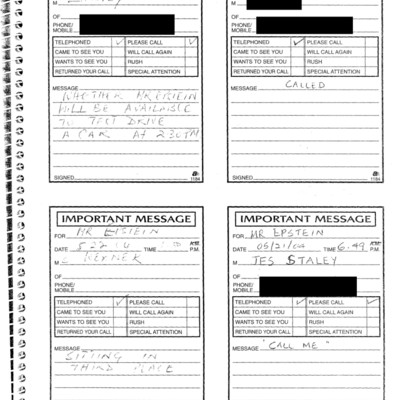 OF
PHONE/
MOBILE
TELEPHONED ✓ PLEASE CALL ✓
CAME TO SEE YOU WILL CALL AGAIN
WANTS TO SEE YOU RUSH
RETURNED YOUR CALL SPECIAL ATTENTION
MESSAGE
WHETHER MR EPSTEIN
WILL BE AVAILABLE
TO TEST DRIVE
A CAR AT 2 30 PM
SIGNED 1184
OF
PHONE/
MOBILE
TELEPHONED PLEASE CALL
CAME TO SEE YOU WILL CALL AGAIN
WANTS TO SEE YOU RUSH
RETURNED YOUR CALL SPECIAL ATTENTION
MESSAGE CALLED
SIGNED 1184
IMPORTANT MESSAGE
FOR MR EPSTEIN
DATE TIME P.M.
M
OF
PHONE/
MOBILE
TELEPHONED ✓ PLEASE CALL
CAME TO SEE YOU WILL CALL AGAIN
WANTS TO SEE YOU RUSH
RETURNED YOUR CALL SPECIAL ATTENTION
MESSAGE
SITTING IN
THIRD PLACE
IMPORTANT MESSAGE
FOR MR EPSTEIN
DATE 05/21/04 TIME 6:49 P.M.
M JES STALEY
OF
PHONE/
MOBILE
TELEPHONED PLEASE CALL ✓
CAME TO SEE YOU WILL CALL AGAIN
WANTS TO SEE YOU RUSH
RETURNED YOUR CALL SPECIAL ATTENTION
MESSAGE "CALL ME"